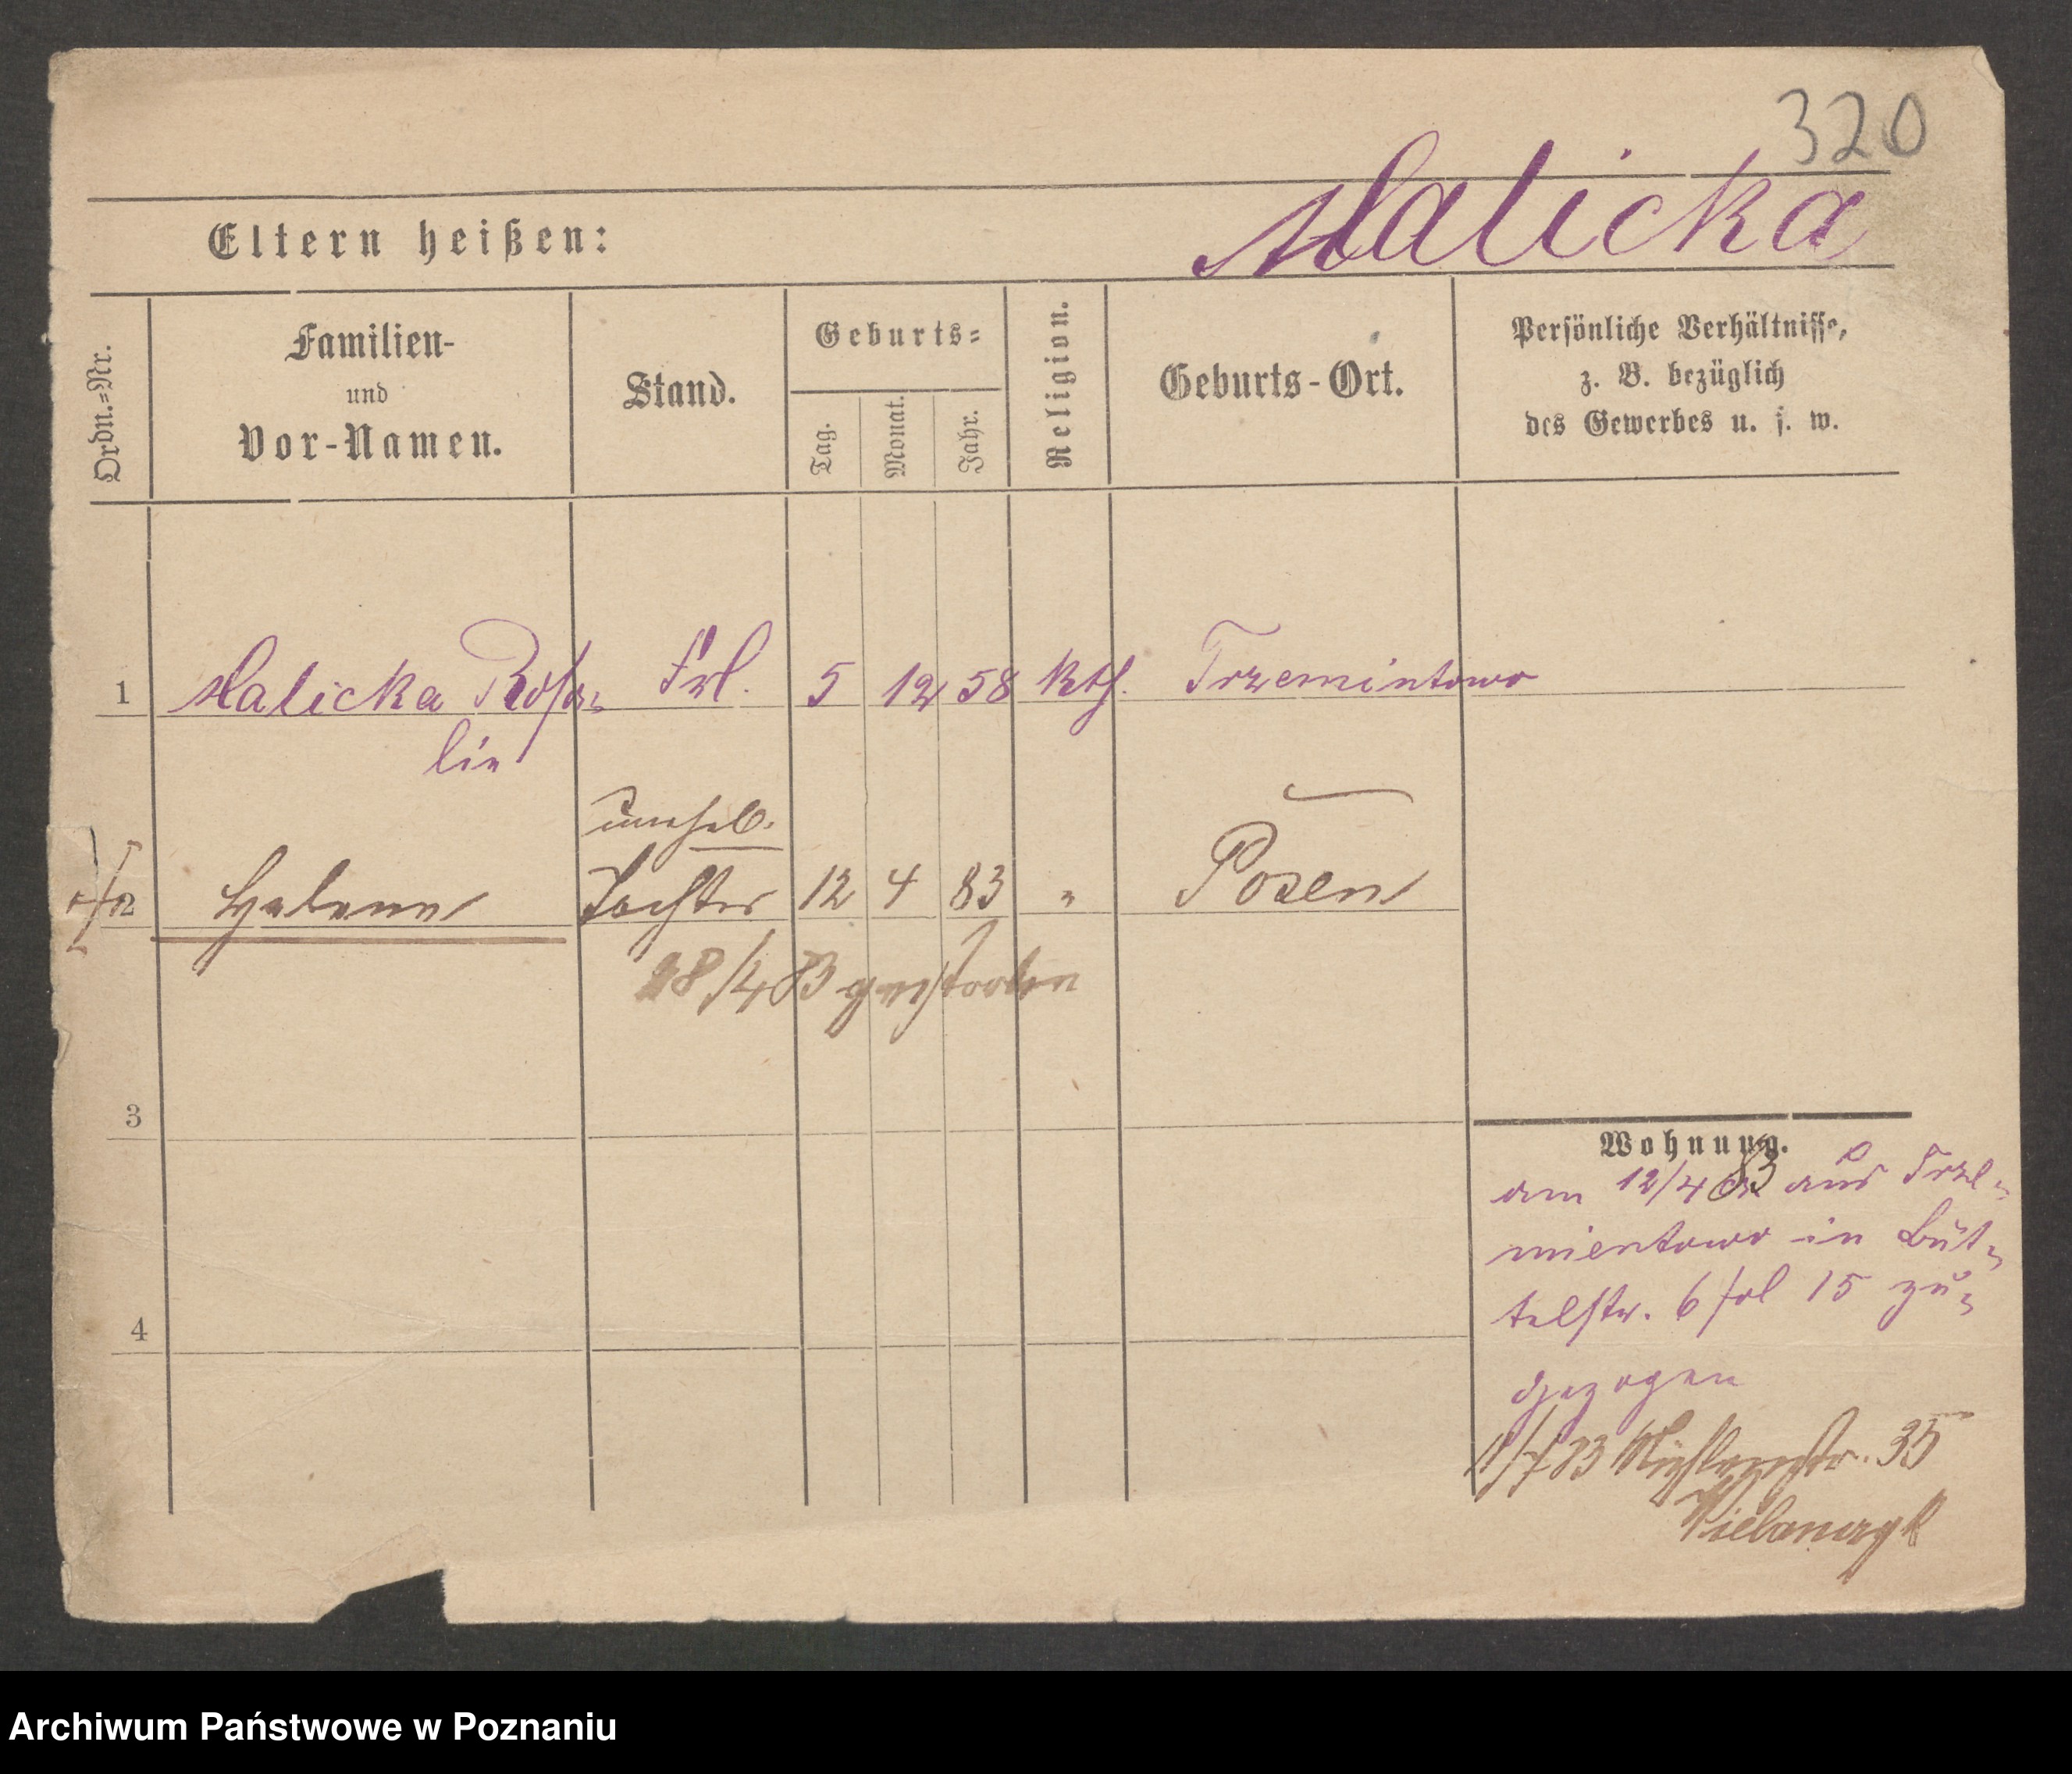 320
Malicka
Eltern heißen:
Ordn.=Nr.
Familien-
und
Vor-Namen.
Stand.
Geburts=
Tag.
Monat.
Jahr.
Religion.
Geburts-Ort.
Persönliche Verhältnisse,
z. B. bezüglich
des Gewerbes u. s. w.
1 Malicka Rosa= Frl. 5 12 58 kth. Trzemintowo
lie
unehel.
2 Helene Tochter 12 4 83 " Posen
18/4 83 gestorben
3
Wohnung.
am 12/4 83 aus Trze=
mientowo in Büt=
telstr. 6 fol 15 zu=
4
gezogen
11/7 83 Mühlenstr. 35
Archiwum Państwowe w Poznaniu